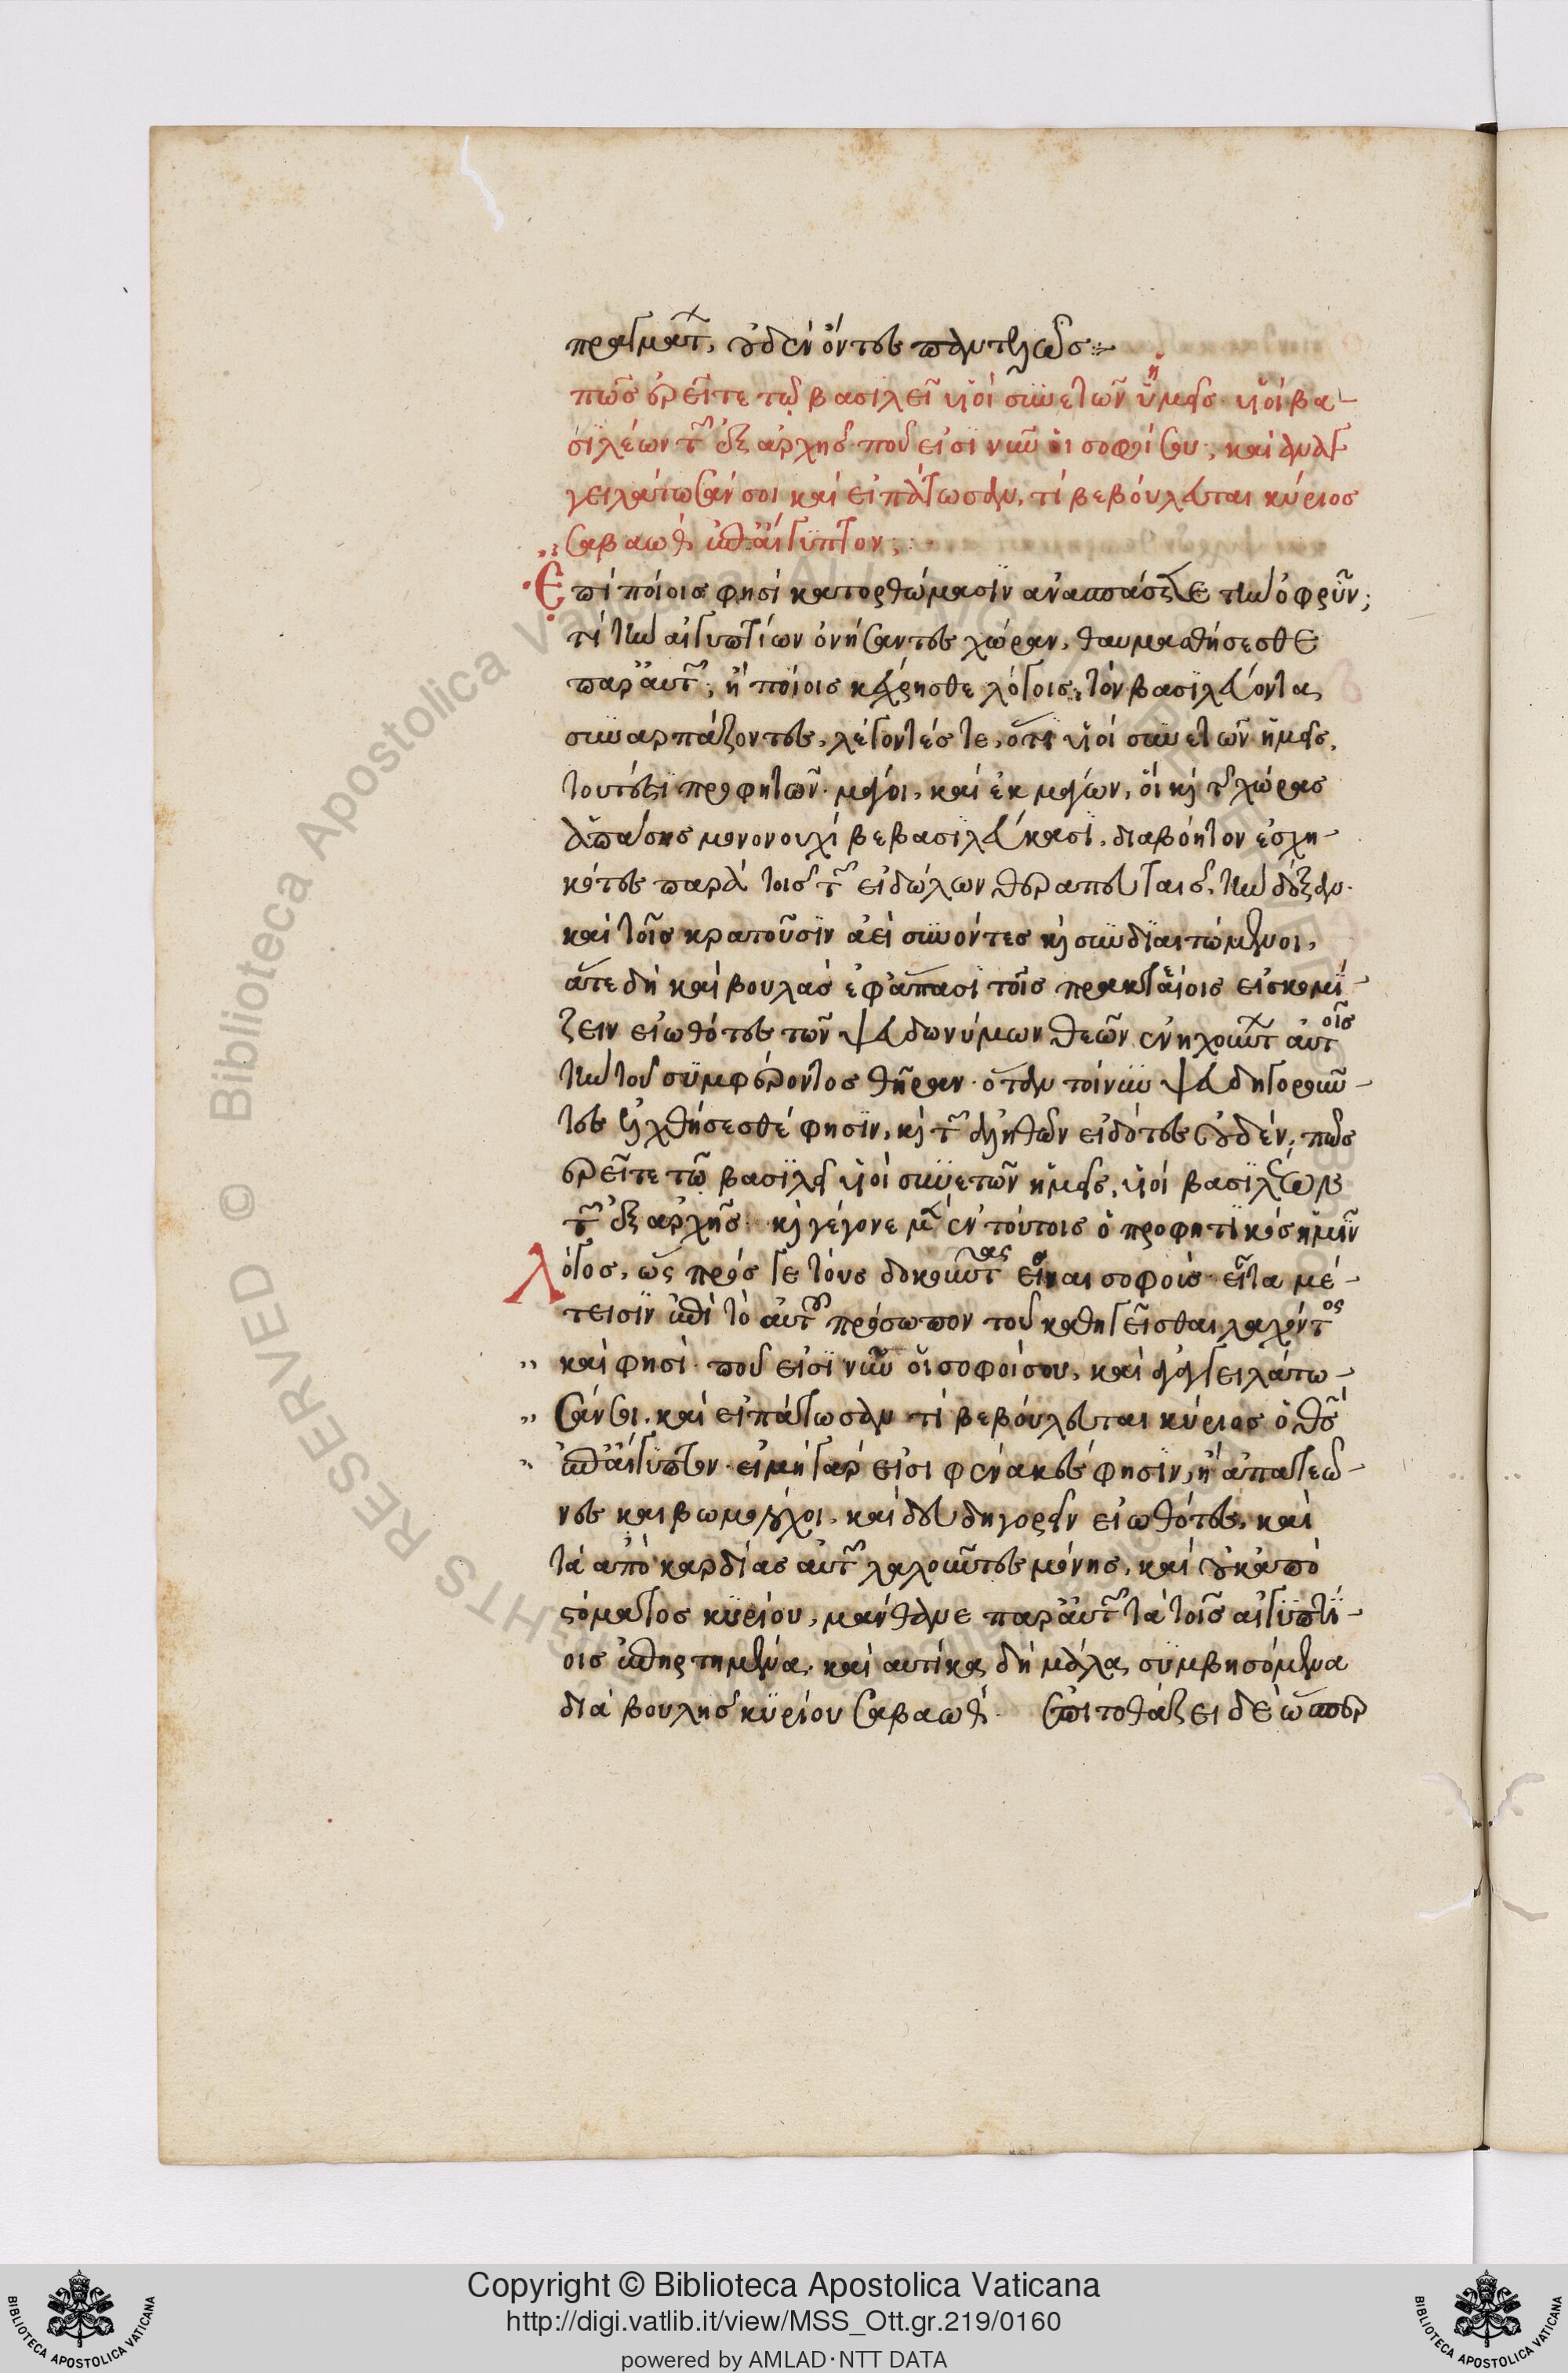 πραγμάτων, οὐδὲν ὄντες παντελῶς:-
πῶς ἐρεῖτε τῷ βασιλεῖ υἱοὶ συνετῶν ἡμεῖς· υἱοὶ βα-
σιλέων τῶν ἐξ ἀρχῆς· ποῦ εἰσι νῦν οἱ σοφοί σου; καὶ ἀναγ
γειλάτωσάν σοι καὶ εἰπάτωσαν, τί βεβούλευται κύριος
σαβαὼθ ἐπ' αἴγυπτον;
Ἐπὶ ποίοις φησὶ κατορθώμασιν ἀνασπάσετε τὴν ὀφρῦν;
τί τὴν αἰγυπτίων ὀνήσαντες χώραν, θαυμασθήσεσθε
παρ' αὐτῶν; ἢ ποίοις κέχρησθε λόγοις, τὸν βασιλεύοντα
συναρπάζοντες, λέγοντές τε, ὅτι υἱοὶ συνετῶν ἡμεῖς,
τουτέστι προφητῶν· μάγοι, καὶ ἐκ μάγων, οἳ καὶ τῆς χώρας
ἁπάσης μονονουχὶ βεβασιλεύκασι, διαβόητον ἐσχη-
κότες παρὰ τοῖς τῶν εἰδώλων θεραπευταῖς, τὴν δόξαν·
καὶ τοῖς κρατοῦσιν ἀεὶ συνόντες καὶ συνδιαιτώμενοι,
ἅτε δὴ καὶ βουλὰς ἐφ' ἅπασι τοῖς πρακτέοις εἰσκομί-
ζειν εἰωθότες τῶν ψευδωνύμων θεῶν ἐνηχούντων αὐτοῖς
τὴν τοῦ συμφέροντος θήραν· ὅταν τοίνυν ψευδηγοροῦν-
τες ἐλεγχθήσεσθέ φησιν, καὶ τῶν ἀληθῶν εἰδότες οὐδέν, πῶς
ἐρεῖτε τῷ βασιλεῖ υἱοὶ συνετῶν ἡμεῖς, υἱοὶ βασιλέων
τῶν ἐξ ἀρχῆς· καὶ γέγονε μὲν ἐν τούτοις ὁ προφητικὸς ἡμῖν
λόγος, ὡς πρός γε τοὺς δοκοῦντας εἶναι σοφούς· εἶτα μέ-
τεισιν ἐπὶ τὸ αὐτοῦ πρόσωπον τοῦ καθηγεῖσθαι λαχόντος
καὶ φησί· ποῦ εἰσι νῦν οἱ σοφοί σου, καὶ ἀναγγειλάτω-
σάν σοι, καὶ εἰπάτωσαν τί βεβούλευται κύριος ὁ θς
ἐπ' αἴγυπτον· εἰ μὴ γάρ εἰσι φένακές φησιν, ἢ ἀπατεῶ-
νες καὶ βωμολόχοι, καὶ ψευδηγορεῖν εἰωθότες, καὶ
τὰ ἀπὸ καρδίας αὐτῶν λαλοῦντες μόνης, καὶ οὐκ ἀπὸ
στόματος κυρίου, μάνθανε παρ' αὐτῶν τὰ τοῖς αἰγυπτί-
οις ἐπηρτημένα, καὶ αὐτίκα δὴ μάλα συμβησόμενα
διὰ βουλῆς κυρίου σαβαώθ· ἐπιτωθάζει δὲ ὥσπερ
Copyright © Biblioteca Apostolica Vaticana
http://digi.vatlib.it/view/MSS_Ott.gr.219/0160
powered by AMLAD·NTT DATA